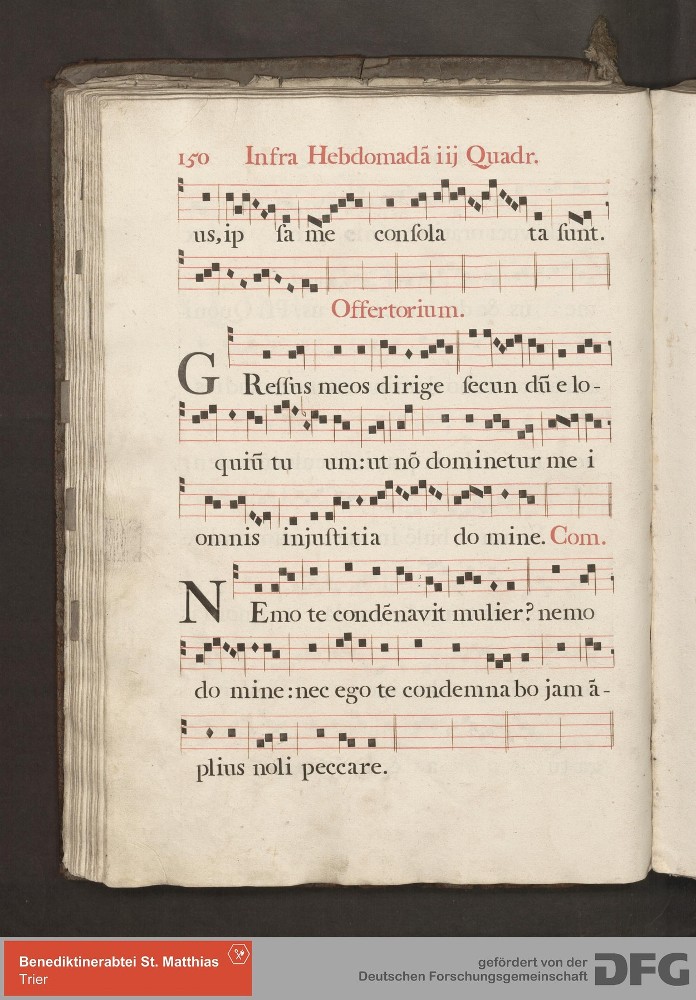 150 Infra Hebdomadā iij Quadr.
us, ip ſa me conſola ta ſunt.
Offertorium.
GReſſus meos dirige ſecun dū e lo-
quiū tu um: ut nō dominetur me i
omnis injuſti tia do mine. Com.
NEmo te condēnavit mulier? nemo
do mine: nec ego te condemna bo jam ā-
plius noli peccare.
Benediktinerabtei St. Matthias
Trier
gefördert von der
Deutschen Forschungsgemeinschaft DFG